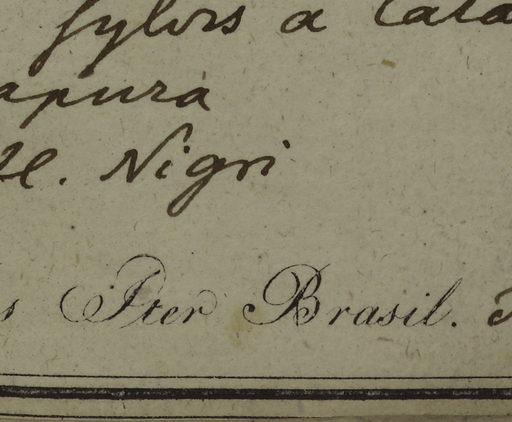 sylvis a Cata
apura
fl. Nigri
s Iter Brasil.